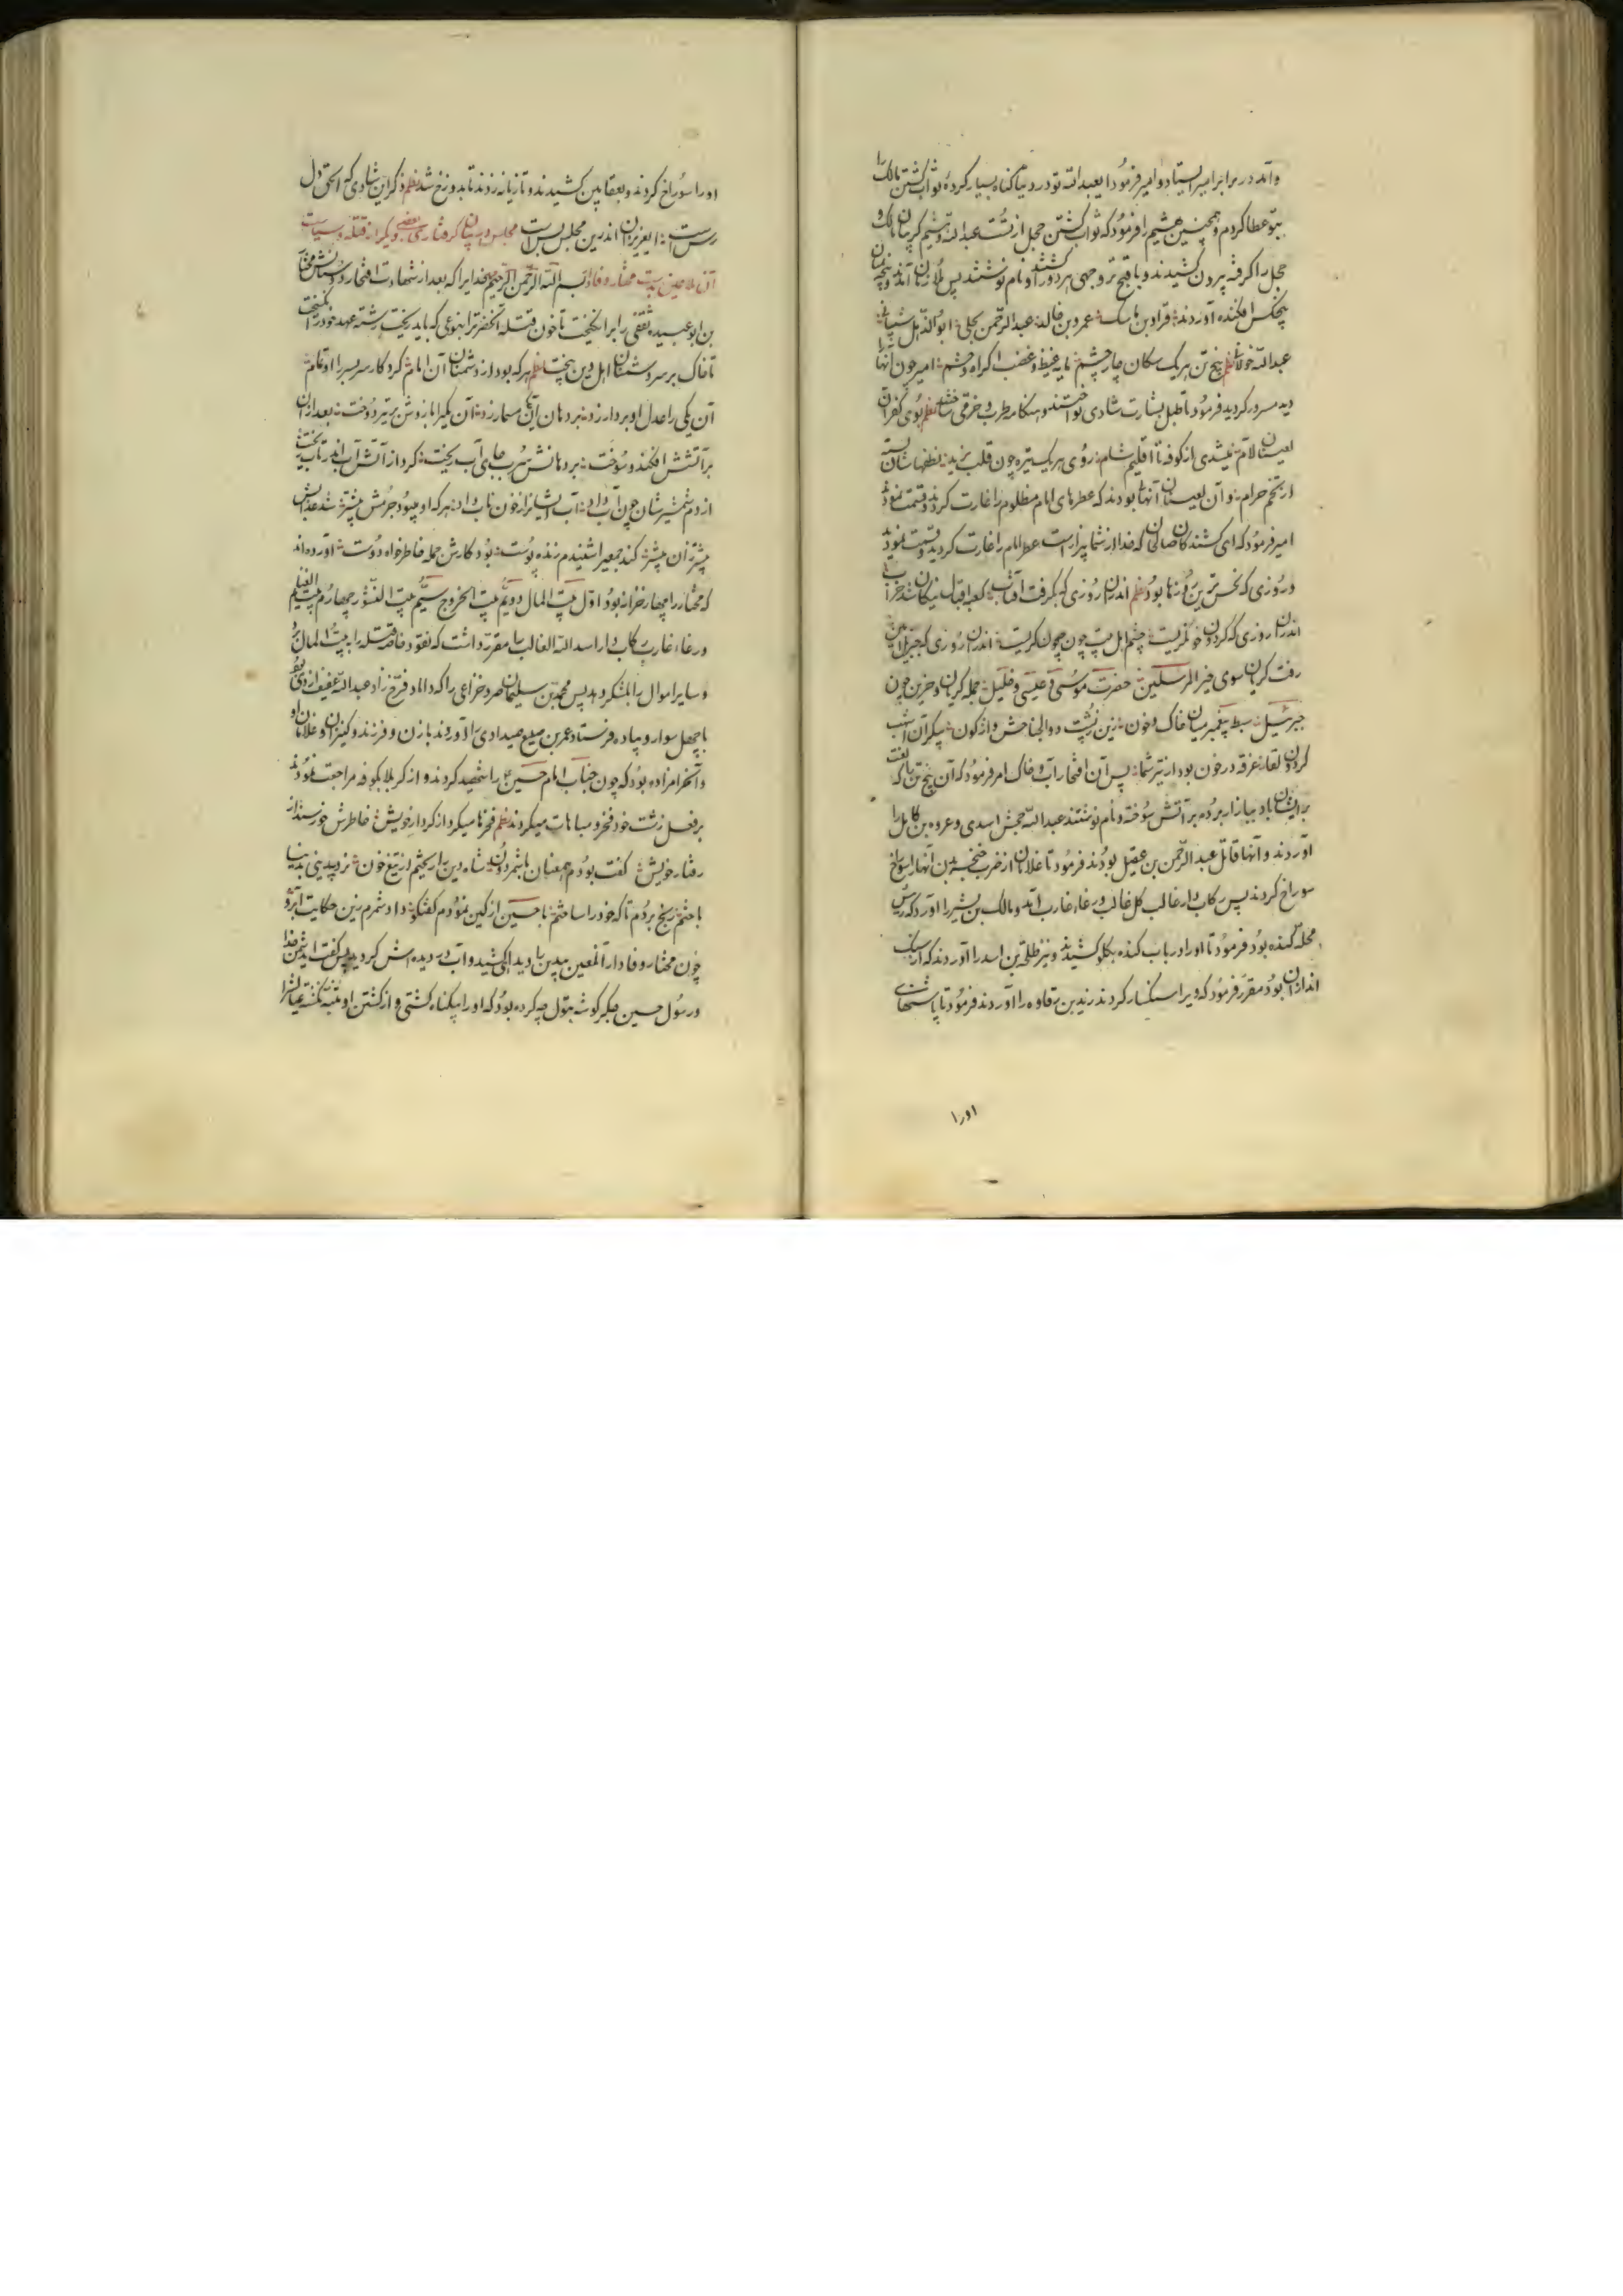 وآمد در برابر امیر ایستاد و امیر فرمود ایعبدالله تو در دنیا گناه بسیار کردهٔ ثواب کشتن مالک را
بتو عطا کردم و همچنین هشیم را فرمود که ثواب کشتن حمل از تست عبدالله و هشیم گریبان مالک و
حمل را گرفته بیرون کشیدند و باقبح تر وجهی هر دو را کشتند و نام نوشتند پس ملازمان آمدند و پنجه
پنجکس افکنده آوردند قراد بن مالک عمرو بن خالد عبدالرحمن بجلی
عبدالله خولانی نظم پنج تن هر یک سگان چار چشم مایه غیظ و غضب اکراه و خشم امیر چون آنها را
دید مسرور گردید فرمود تا طبل بشارت شادی نواختند و هنگامه طرب و خرمی ساختند نظم بوی کفران
از کوفه تا اقلیم شام روی هر یک تیره چون قلب یزید نطفهاشان بسته
از تخم حرام و آن لعینان آنها بودند که عطرهای امام مظلوم را غارت کردند و قسمت نمودند
امیر فرمود که ای کشندگان صالحان که خدا از شما بیزار است عطر امام را غارت کردید و قسمت نمودید
در روزی که نحس ترین روزها بود نظم اندران روزی که بگرفت آفتاب کعبه اقبال نیکان شد خراب
اندران روزی که گردون خون گریست چشم اهل بیت چون جیحون گریست اندران روزی که جبریل امین
رفت گریان سوی خیر المرسلین حضرت موسی و عیسی و خلیل جمله گریان و حزین چون
جبرئیل سبط پیغمبر میان خاک و خون زین ز پشت ذوالجناحش واژگون پیکر آن
گردون لقا غرقه در خون بود از تیر شما پس آن افتخار آب و خاک امر فرمود که آن پنج تن را که لعنت
بر ایشان باد ببازار برده بر آتش سوخته و نام نوشتند عبدالله جحش اسدی و عروه بن کامل را
آوردند و آنها قاتل عبدالرحمن بن عقیل بودند فرمود تا غلامان از ضرب خنجر بدن آنها را سوراخ
سوراخ کردند پس رکاب دار غالب کل غالب ورغاء غارب آمد و مالک بن بشیر را آورد که
محله کنده بود فرمود تا او را در باب کنده بگلو کشیدند و نیز طلحة بن اسد را آوردند که از سنگ
اندازان بود مقرر فرمود که ویرا سنگسار کردند زید بن رقاوه را آوردند فرمود تا پاشنهای
اورا
او را سوراخ کردند و بعقابین کشیدند و تازیانه زدند تا بدوزخ شد نظم ذکر این شادی که الحق دل
رس است ایعزیزان اندرین مجلس بس است مجلس در بیان گرفتاری بعضی دیگر از قتله و سیاست
آن ملاعین بدست مختار وفادار بسم الله الرحمن الرحیم بخدایرا که بعد از شهادت افتخار دوستانش مختار
بن ابو عبیده ثقفی را برانگیخت تا خون قتله آنحضرترا بنوعی که باید ریخت رشته عهد خود را
تا خاک بر سر دشمنان اهل دین بیخت نظم هر که بود از دشمنان آن امام کرد کار سر بسر را او تمام
آن یکی را عدل او بر دار زد بر دهان این سمار زد آن یکیرا بازوش بر تیر دوخت بعد ازان
بر آتشش افکند و سوخت بر دهانش سرب جای آب ریخت کرد از آتش
از دم شمشیرشان چون آب داد آب ایشانرا ز خون ناب داد هر که او میبود جرمش بیشتر شد عذابش
بیشتر زان بیشتر کند جمعیرا شنیدم زنده پوست بود کارش جمله خاطر خواه دوست آورده اند
که مختار را چهار خزانه بود اول بیت المال دویم بیت الخروج سیم بیت چهارم بیت الغنایم
ورغاء غارب رکاب دار اسد الله الغالب را مقرر داشت که نقود خاصه قتله را به بیت المال برد
و سایر اموال را بلشکر دهد پس محمد بن سلیمان صرد خزاعی را که داماد فرخ زاد عبدالله عفیف ازدی بود
با چهل سوار و پیاده فرستاد عمر بن صبیح صیداوی را آوردند با زن و فرزند و کنیزان و غلامان او
و آنحرامزاده بود که چون جناب امام حسین را شهید کردند و از کربلا بکوفه مراجعت نمودند
بر فعل زشت خود فخر و مباهات میکردند نظم فخرها میکرد از کردار خویش خاطرش خورسند از
رفتار خویش گفت بودم همعنان با شمر دون شاه دین را ریختم از تیغ خون نزد پیدینی بدنیا
باختم رنج بردم تا که خود را ساختم با حسین از کین نمودم گفتگو داد شمرم زین حکایت آبرو
چون مختار وفادار آنلعین بیدین را دید آهی کشید و آب در دیده اش گردید پس گفت ای دشمن خدا
و رسول حسین جگرگوشه بتول چه کرده بود که او را بیگناه کشتی و از کشتن او